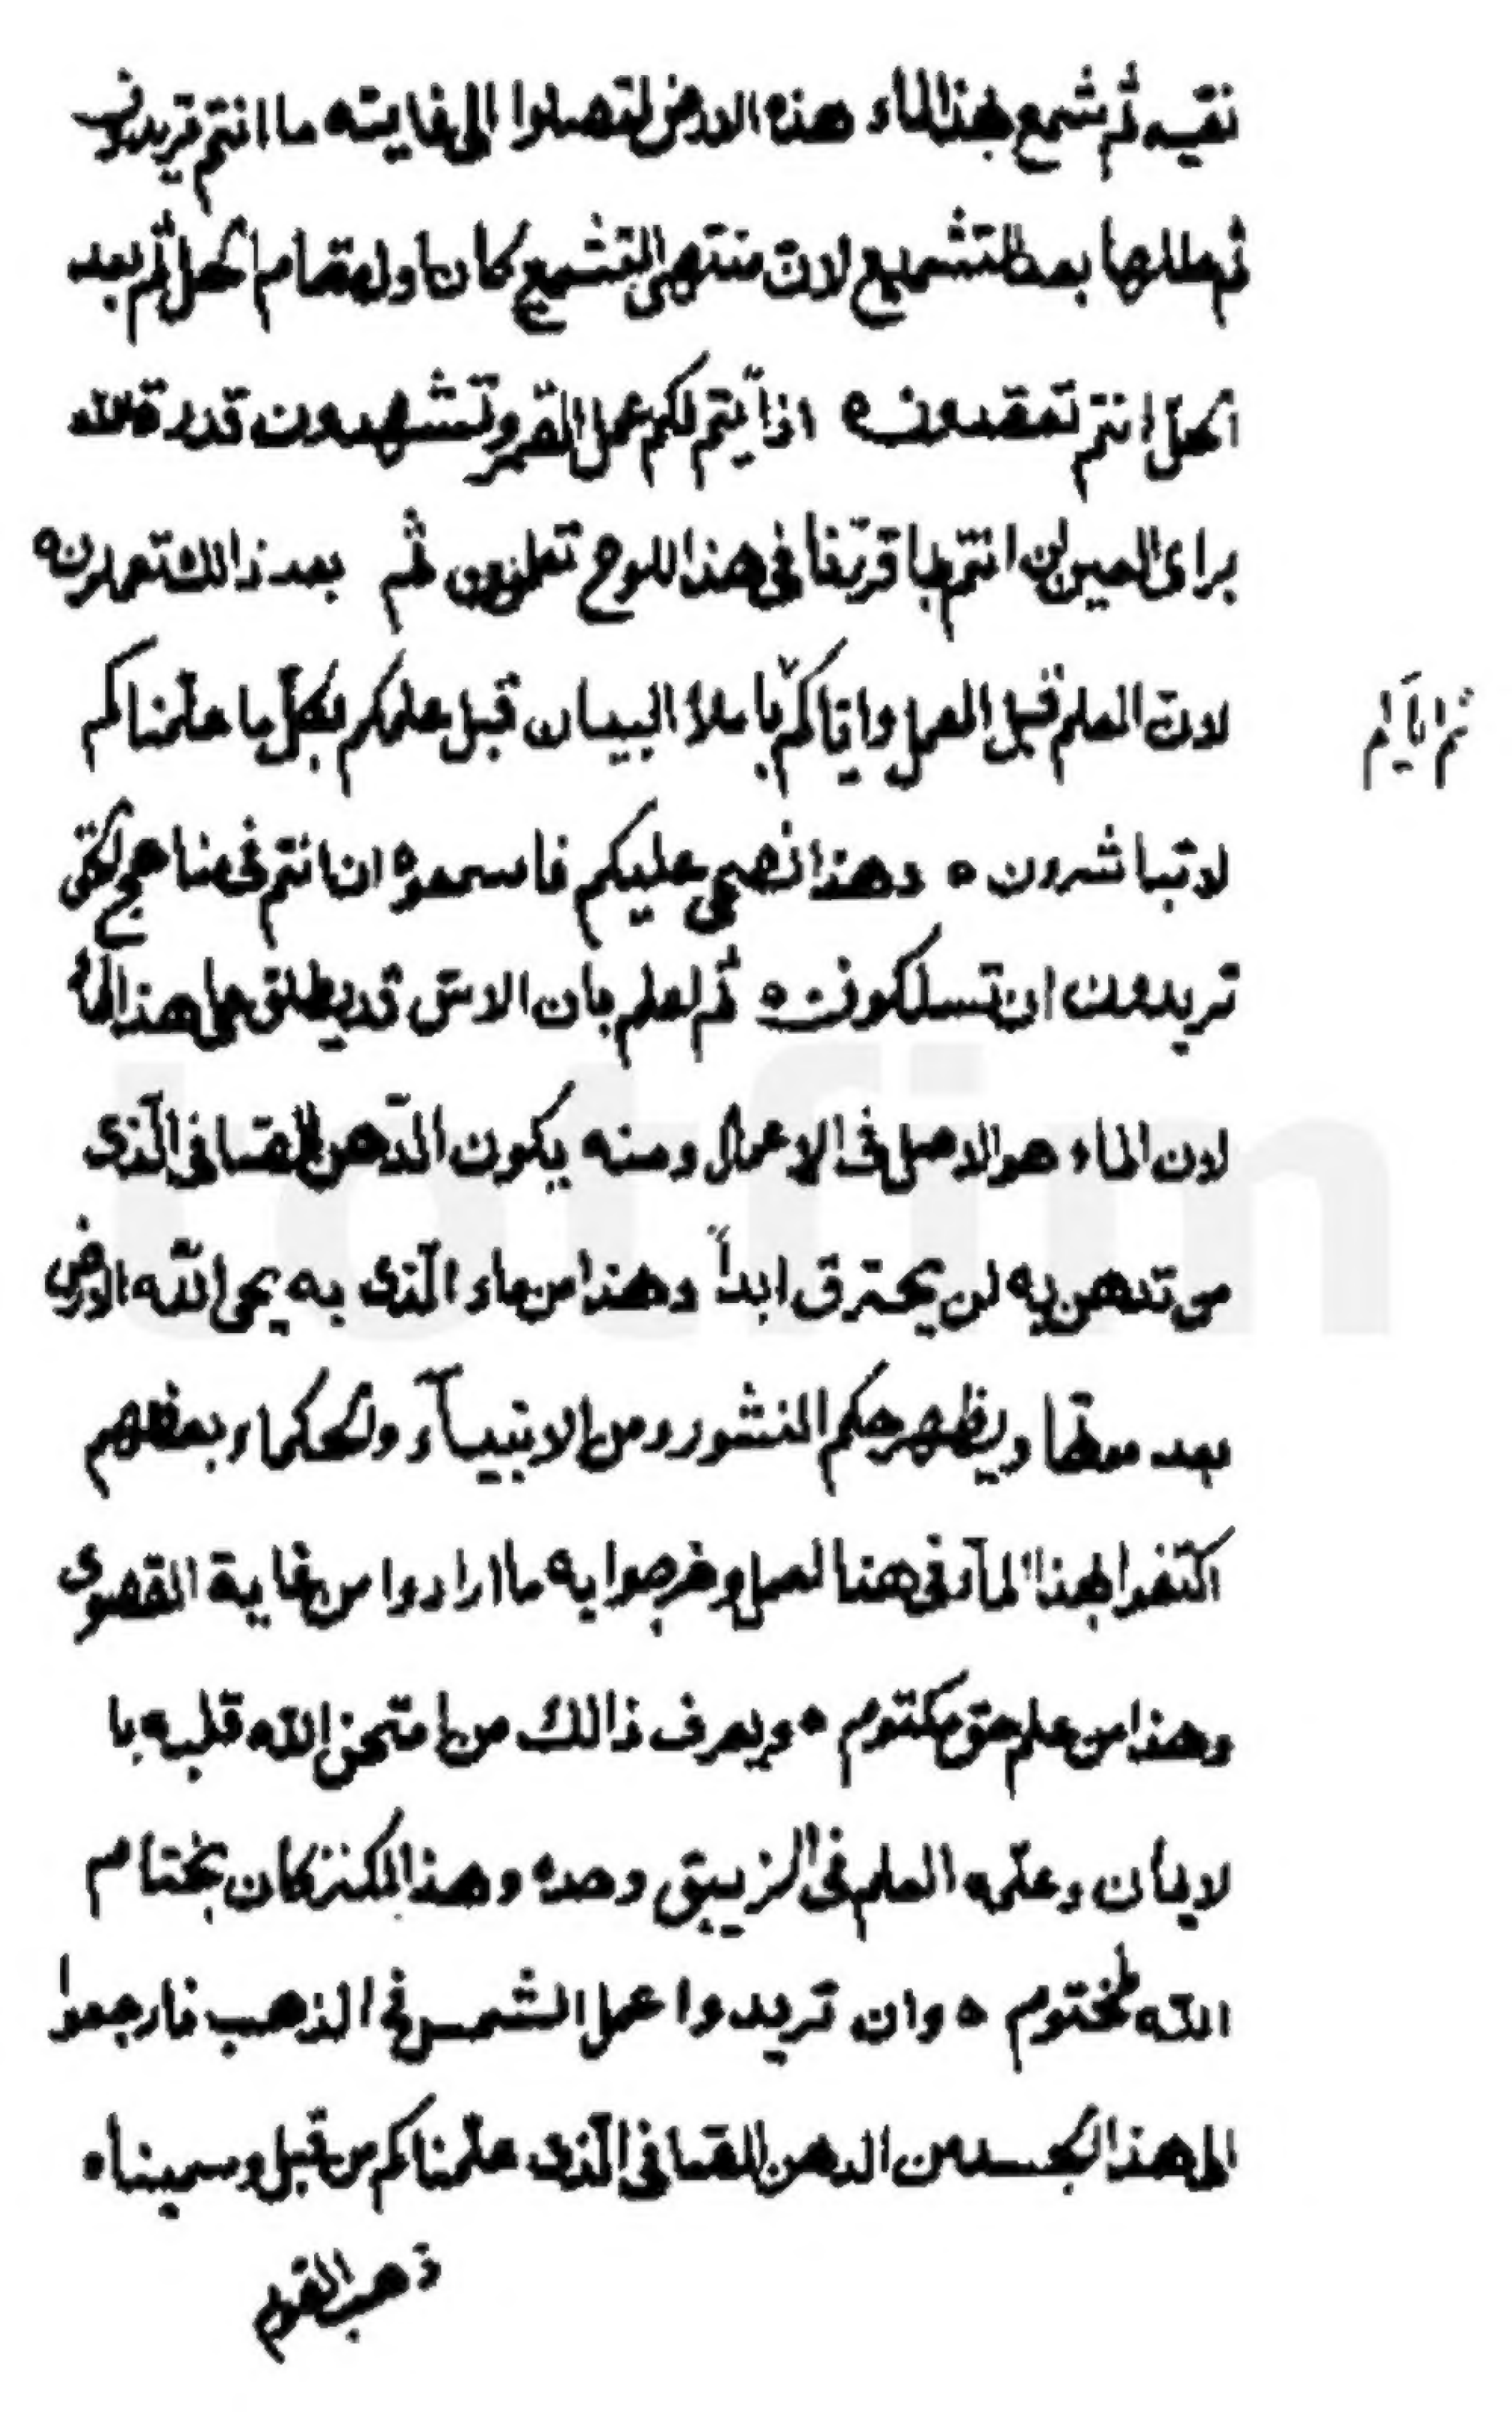 نقيه ثم شمع بهذا الماء هذه الارض لتصلوا الى غايته ما انتم تريدون
ثم حللها بعد التشميع لان منتهى التشميع كان اول مقام الحل ثم بعد
الحل انتم تعقدون ه اذاً يتم لكم عمل القمر وتشهدون قدرة الله
براى العين ان انتم بما قرّبنا فى هذا اللوح تعلمون ثم بعد ذالك تعملون ه
لان العلم قبل العمل واياكم يا ملأ البيان قبل علمكم بكلّ ما علّمناكم
ثم اياكم
لا تباشرون ه وهذا نصحى عليكم فاسمعوه ان انتم فى مناهج التقى
تريدون ان تسلكون ه ثم اعلم بان الاسّ قد يطلق على هذا الماء
لان الماء هو الاصل فى الاعمال ومنه يكون الدّهن الصافى الّذى
من تدهن به لن يحترق ابداً وهذا من ماء الّذى به يحى الله الارض
بعد موتها ويظهر حكم النشور ومن الانبيآء والحكماء بعضهم
اكتفوا بهذا المآء فى هذا العمل وخرجوا به ما ارادوا من غاية القصوى
وهذا من علم حق مكتوم ه ويعرف ذالك من امتحن الله قلبه با
لايمان وعلّمه العلم فى الزيبق وحده وهذا الكنز كان بختام
الله لمختوم ه وان تريدوا عمل الشمس فى الذهب فارجعوا
الى هذا الجسد من الدهن الصافى الّذى علّمناكم من قبل وسميناه
ذهب القوم